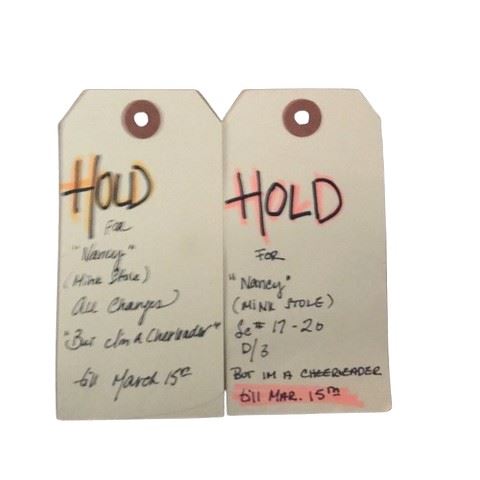 HOLD
FOR
"Nancy"
(Mink Stole)
All Changes
"But I'm a Cheerleader"
till March 15th
HOLD
FOR
"Nancy"
(MINK STOLE)
Sc# 17-20
D/3
BUT IM A CHEERLEADER
till MAR. 15TH